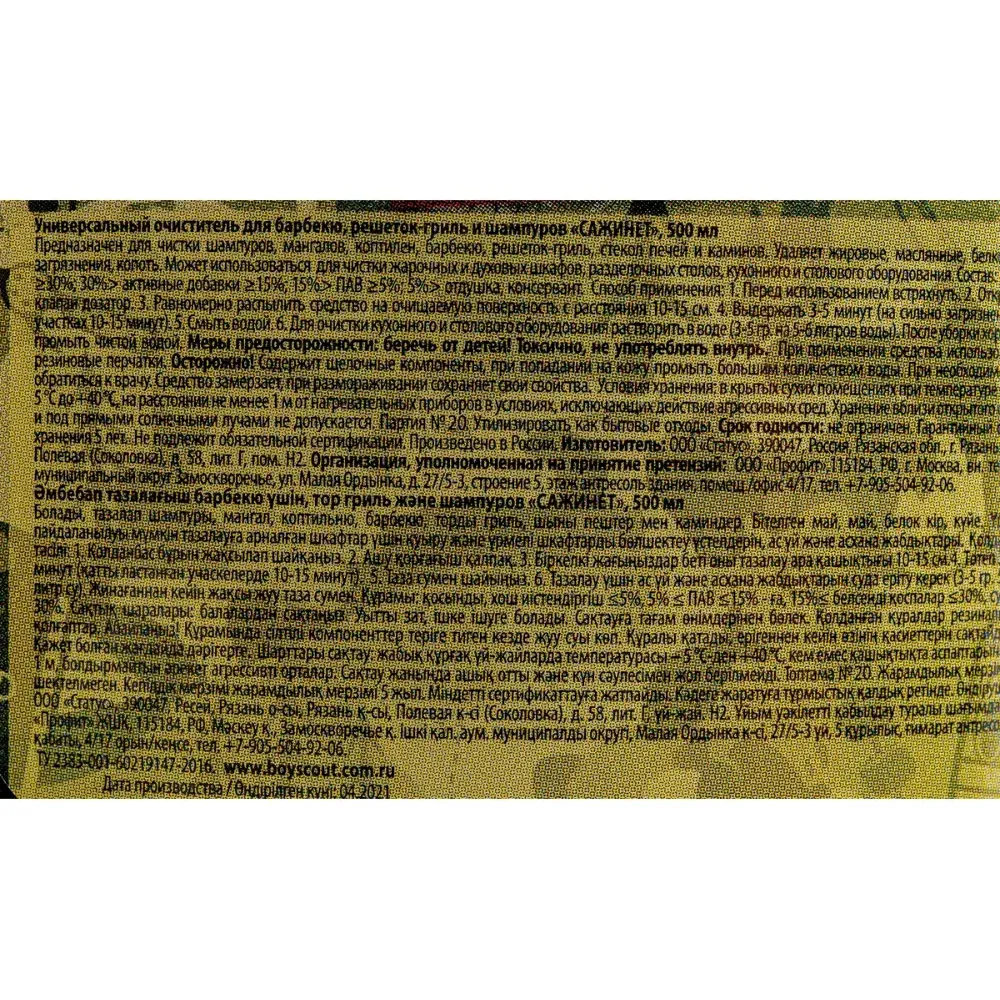 Универсальный очиститель для барбекю, решеток-гриль и шампуров «САЖИНЕТ», 500 мл
Предназначен для чистки шампуров, мангалов, коптилен, барбекю, решеток-гриль, стекол печей и каминов. Удаляет жировые, маслянные, белко
загрязнения, копоть. Может использоваться для чистки жарочных и духовых шкафов, разделочных столов, кухонного и столового оборудования. Состав
≥30%; 30%> активные добавки ≥15%; 15%> ПАВ ≥5%; 5%> отдушка, консервант. Способ применения: 1. Перед использованием встряхнуть. 2. От
клапан дозатор. 3. Равномерно распылить средство на очищаемую поверхность с расстояния 10-15 см. 4. Выдержать 3-5 минут (на сильно загрязне
участках 10-15 минут). 5. Смыть водой. 6. Для очистки кухонного и столового оборудования растворить в воде (3-5 гр. на 5-6 литров воды). После уборки т
промыть чистой водой. Меры предосторожности: беречь от детей! Токсично, не употреблять внутрь. При применении средства использо
резиновые перчатки. Осторожно! Содержит щелочные компоненты, при попадании на кожу промыть большим количеством воды. При необходим
обратиться к врачу. Средство замерзает, при размораживании сохраняет свои свойства. Условия хранения: в крытых сухих помещениях при температуре
5 °C до +40 °C, на расстоянии не менее 1 м от нагревательных приборов в условиях, исключающих действие агрессивных сред. Хранение вблизи открытого
и под прямыми солнечными лучами не допускается. Партия № 20. Утилизировать как бытовые отходы. Срок годности: не ограничен. Гарантийный
хранения 5 лет. Не подлежит обязательной сертификации. Произведено в России. Изготовитель: ООО «Статус», 390047, Россия, Рязанская обл., г. Рязан
Полевая (Соколовка), д. 58, лит. Г, пом. Н2. Организация, уполномоченная на принятие претензий: ООО «Профит», 115184, РФ, г. Москва, вн. те
муниципальный округ Замоскворечье, ул. Малая Ордынка, д. 27/5-3, строение 5, этаж антресоль здания, помещ./офис 4/17. тел. +7-905-504-92-06.
Әмбебап тазалағыш барбекю үшін, тор гриль және шампуров «САЖИНЕТ», 500 мл
Болады, тазалап шампуры, мангал, коптильню, барбекю, торды гриль, шыны пештер мен каминдер. Бітелген май, май, белок кір, күйе.
пайдаланылуы мүмкін тазалауға арналған шкафтар үшін қуыру және үрмелі шкафтарды бөлшектеу үстелдерін, ас үй және асхана жабдықтары. Қолд
тәсілі: 1. Қолданбас бұрын жақсылап шайқаңыз. 2. Ашу қорғағыш қалпақ. 3. Біркелкі жағыңыздар беті оны тазалау ара қашықтығы 10-15 см. 4. Төтеп
минут (қатты ластанған учаскелерде 10-15 минут). 5. Таза сумен шайыңыз. 6. Тазалау үшін ас үй және асхана жабдықтарын суда еріту керек (3-5 гр.
литр су). Жинағаннан кейін жақсы жуу таза сумен. Құрамы: қосынды, хош иістендіргіш ≤5%, 5% ≤ ПАВ ≤15% -ға, 15%≤ белсенді қоспалар ≤30%, су
30%. Сақтық шаралары: балалардан сақтаңыз. Уытты зат, ішке ішуге болады. Сақтауға тағам өнімдерінен бөлек. Қолданған құралдар резин
қолғаптар. Абайлаңыз! Құрамында сілтілі компоненттер теріге тиген кезде жуу суы көп. Құралы қатады, ерігеннен кейін өзінің қасиеттерін сақтай
Қажет болған жағдайда дәрігерге. Шарттары сақтау, жабық құрғақ үй-жайларда температурасы – 5 °C-ден +40 °C, кем емес қашықтықта аспаптары
1 м, болдырмайтын әрекет агрессивті орталар. Сақтау жанында ашық отты және күн сәулесімен жол берілмейді. Топтама № 20. Жарамдылық мер
шектелмеген. Кепілдік мерзімі жарамдылық мерзімі 5 жыл. Міндетті сертификаттауға жатпайды. Кәдеге жаратуға тұрмыстық қалдық ретінде. Өндіруш
ООО «Статус», 390047, Ресей, Рязань о-сы, Рязань қ-сы, Полевая к-сі (Соколовка), д. 58, лит. Г, үй-жай. Н2. Ұйым уәкілетті қабылдау туралы шағым
«Профит» ЖШҚ, 115184, РФ, Мәскеу қ., Замоскворечье к. Ішкі қал. аум. муниципалды округі, Малая Ордынка к-сі, 27/5-3 үй, 5 құрылыс, ғимарат антресо
қабаты, 4/17 орын/кеңсе, тел. +7-905-504-92-06.
ТУ 2383-001-60219147-2016. www.boyscout.com.ru
Дата производства / Өндірілген күні: 04.2021